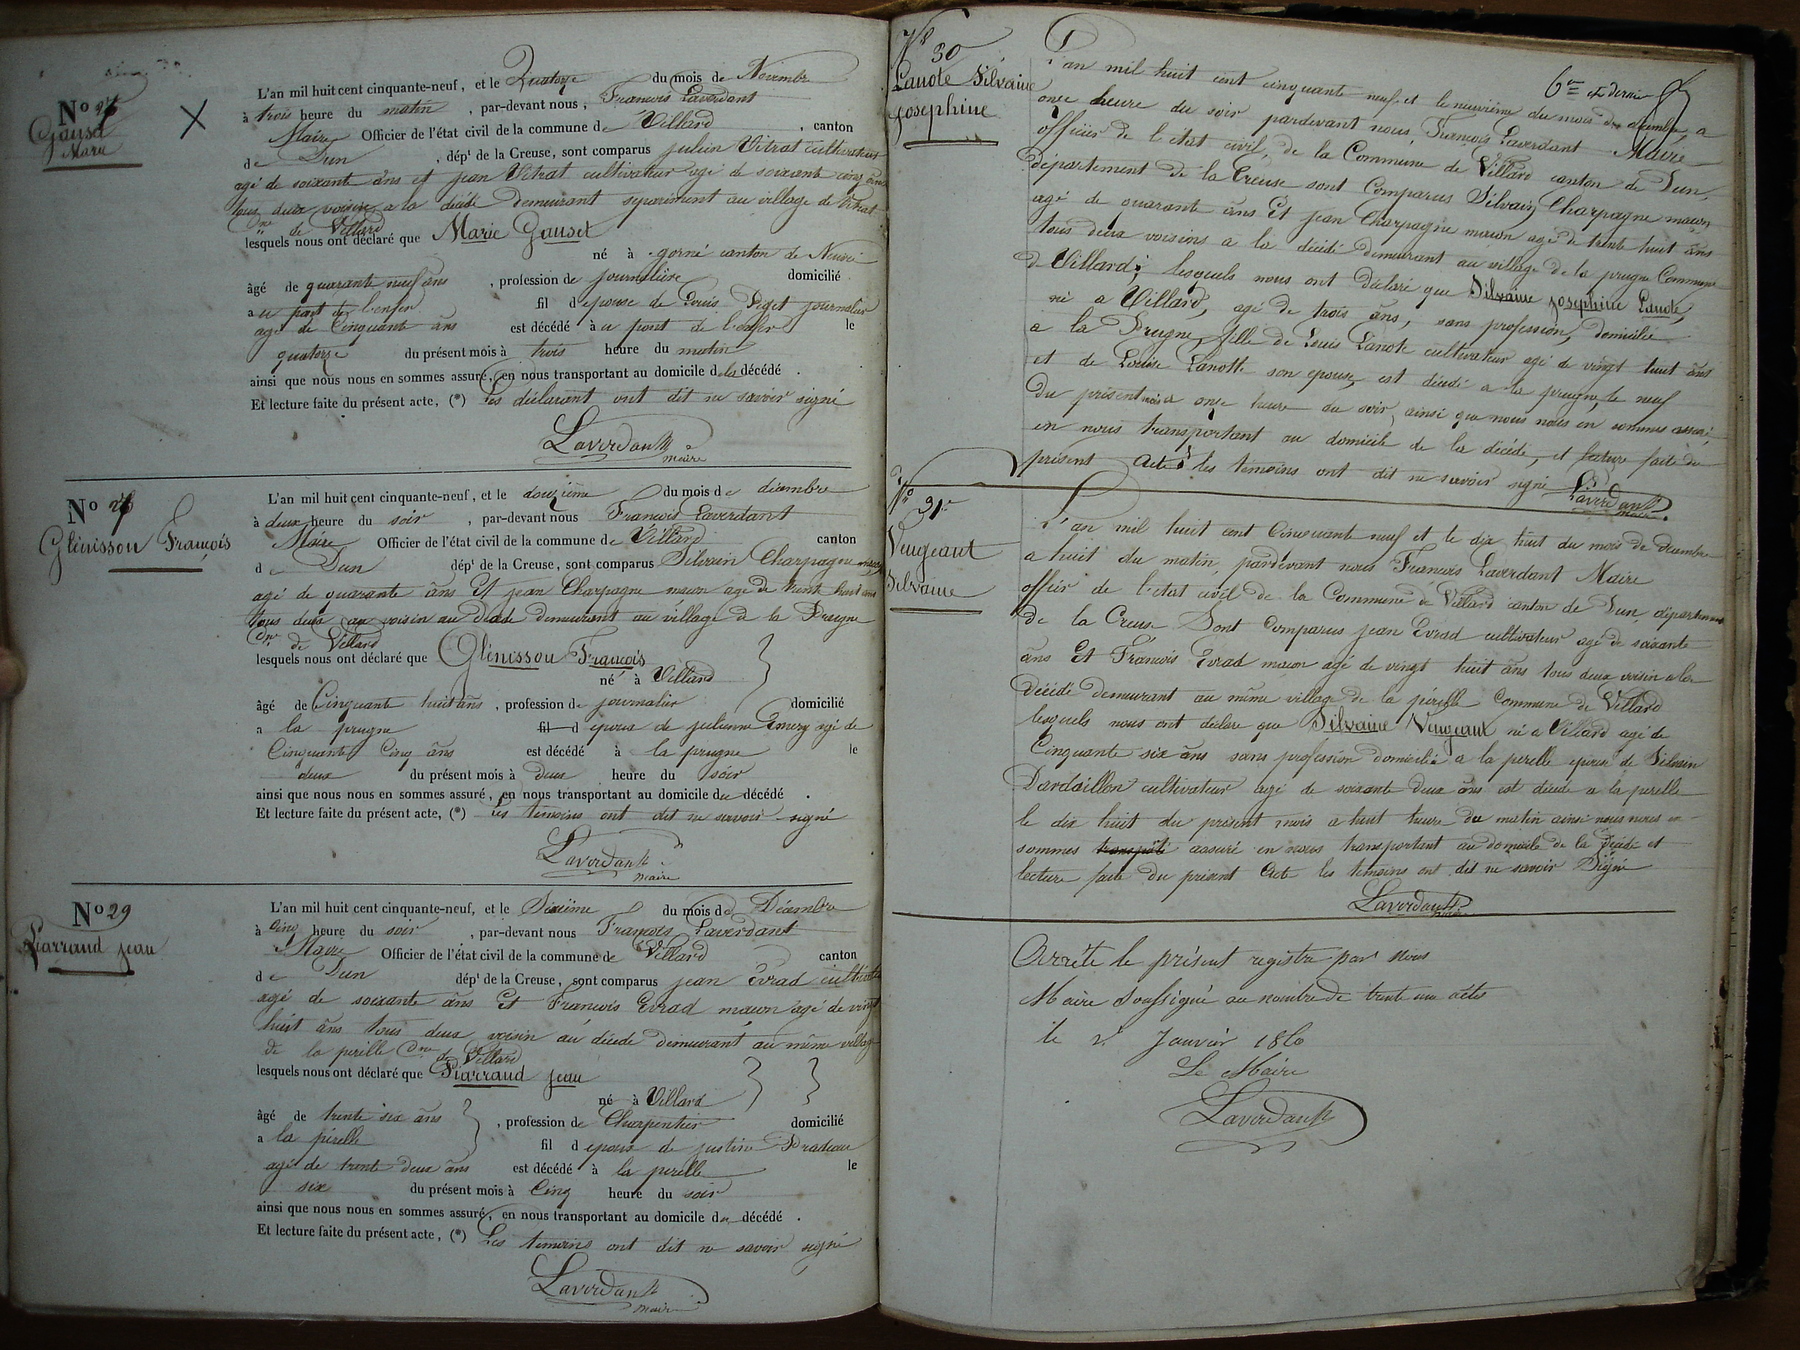 No 27
Gauset
Marie
L'an mil huit cent cinquante-neuf, et le Quatorze du mois de Novembre
à trois heure du matin, par-devant nous, Francois Laverdant
Maire Officier de l'état civil de la commune de Villard, canton
de Dun, dépt de la Creuse, sont comparus julien Vitrat cultivateur
agé de soixante ans et jean Vitrat cultivateur agé de soixante cinq ans
tous deux voisin a la décédé demeurant séparément au village de Vitrat
Cne de Villard
lesquels nous ont déclaré que Marie Gauset
né à gorné canton de
âgé de quarante neuf ans, profession de journalière domicilié
a u pont de l'enfer fil d epouse de Louis journalier
agé de Cinquante ans est décédé à u pont de l'enfer le
quatorze du présent mois à trois heure du matin
ainsi que nous nous en sommes assuré, en nous transportant au domicile de la décédé.
Et lecture faite du présent acte, (*) Les déclarant ont dit ne savoir signé
Laverdant
maire
No 28
Glénisson François
L'an mil huit cent cinquante-neuf, et le douzième du mois de décembre
à deux heure du soir, par-devant nous Francois Laverdant
Maire Officier de l'état civil de la commune de Villard canton
de Dun dépt de la Creuse, sont comparus Silvain Charpagne macon
agé de quarante ans Et jean Charpagne macon agé de trente huit ans
tous deux voisin au décédé demeurant au village de la Prugne
Cne de Villard
lesquels nous ont déclaré que Glénisson François
né à Villard
âgé de Cinquante huit ans, profession de journalier domicilié
a la prugne fil d époux de julienne Emery agé de
Cinquante Cinq ans est décédé à la prugne le
deux du présent mois à Deux heure du soir
ainsi que nous nous en sommes assuré, en nous transportant au domicile du décédé.
Et lecture faite du présent acte, (*) Les témoins ont dit ne savoir signé
Laverdant
maire
No 29
Piarraud jean
L'an mil huit cent cinquante-neuf, et le Sixième du mois de Décembre
à Cinq heure du soir, par-devant nous François Laverdant
Maire Officier de l'état civil de la commune de Villard canton
de Dun dépt de la Creuse, sont comparus jean Evrad cultivateur
agé de soixante ans Et Francois Evrad macon agé de vingt
huit ans tous deux voisin au décédé demeurant au même village
de la perelle Cne de Villard
lesquels nous ont déclaré que Piarraud jean
né à Villard
âgé de trente six ans, profession de Charpentier domicilié
a la pérelle fil d epoux de justine Pradeau
agé de trente deux ans est décédé à la perelle le
six du présent mois à Cinq heure du soir
ainsi que nous nous en sommes assuré, en nous transportant au domicile du décédé.
Et lecture faite du présent acte, (*) Les temoins ont dit ne savoir signé
Laverdant
maire
No 30
Lanote Silvaine
Josephine
6me et dernier
L'an mil huit cent cinquante neuf, et le neuvième du mois de décembre, a
onze heure du soir pardevant nous, François Laverdant Maire
officier de l'état civil, de la Commune de Villard canton de Dun,
département de la Creuse sont Comparus Silvain Charpagne macon
agé de quarante ans Et jean Charpagne macon agé de trente huit ans
tous deux voisins a la décédé demeurant au village de la prugne Commune
de Villard; lesquels nous ont déclaré que Silvaine josephine Lanote,
né a Villard, agé de trois ans, sans profession, domicilié
a la Prugne, fille de Louis Lanote cultivateur agé de vingt huit ans
et de Louise Lanotte son epouse, est décédé a la prugne, le neuf
du présent mois a onze heure du soir, ainsi que nous nous en sommes assuré,
en nous transportant au domicile de la décédé, et lecture faite du
présent acte les temoins ont dit ne savoir signé
Laverdant
maire
No 31
Veugeant
Silvaine
L'an mil huit cent Cinquante neuf et le dix huit du mois de decembre
a huit du matin, pardevant nous Francois Laverdant Maire
offiir de l'état civil de la Commune de Villard canton de Dun département
de la Creuse. Sont Comparus jean Evrad cultivateur agé de soixante
ans Et Francois Evrad macon agé de vingt huit ans tous deux voisin a la
décédé demeurant au même village de la pérelle Commune de Villard
lesquels nous ont déclaré que Silvaine Veugeant né a Villard agé de
Cinquante six ans sans profession domicilié a la perelle epouse de Silvain
Dardaillon cultivateur agé de soixante deux ans est décédé a la perelle
le dix huit du présent mois a huit heure du matin ainsi nous nous en
sommes assuré en nous transportant au domicile de la Décédé et
lecture faite du présent Acte les temoins ont dit ne savoir Signé
Laverdant
maire
Arrêté le présent registre par Nous
Maire Soussigné au nombre de trente un actes
le 2 Janvier 1860
Le Maire
Laverdant